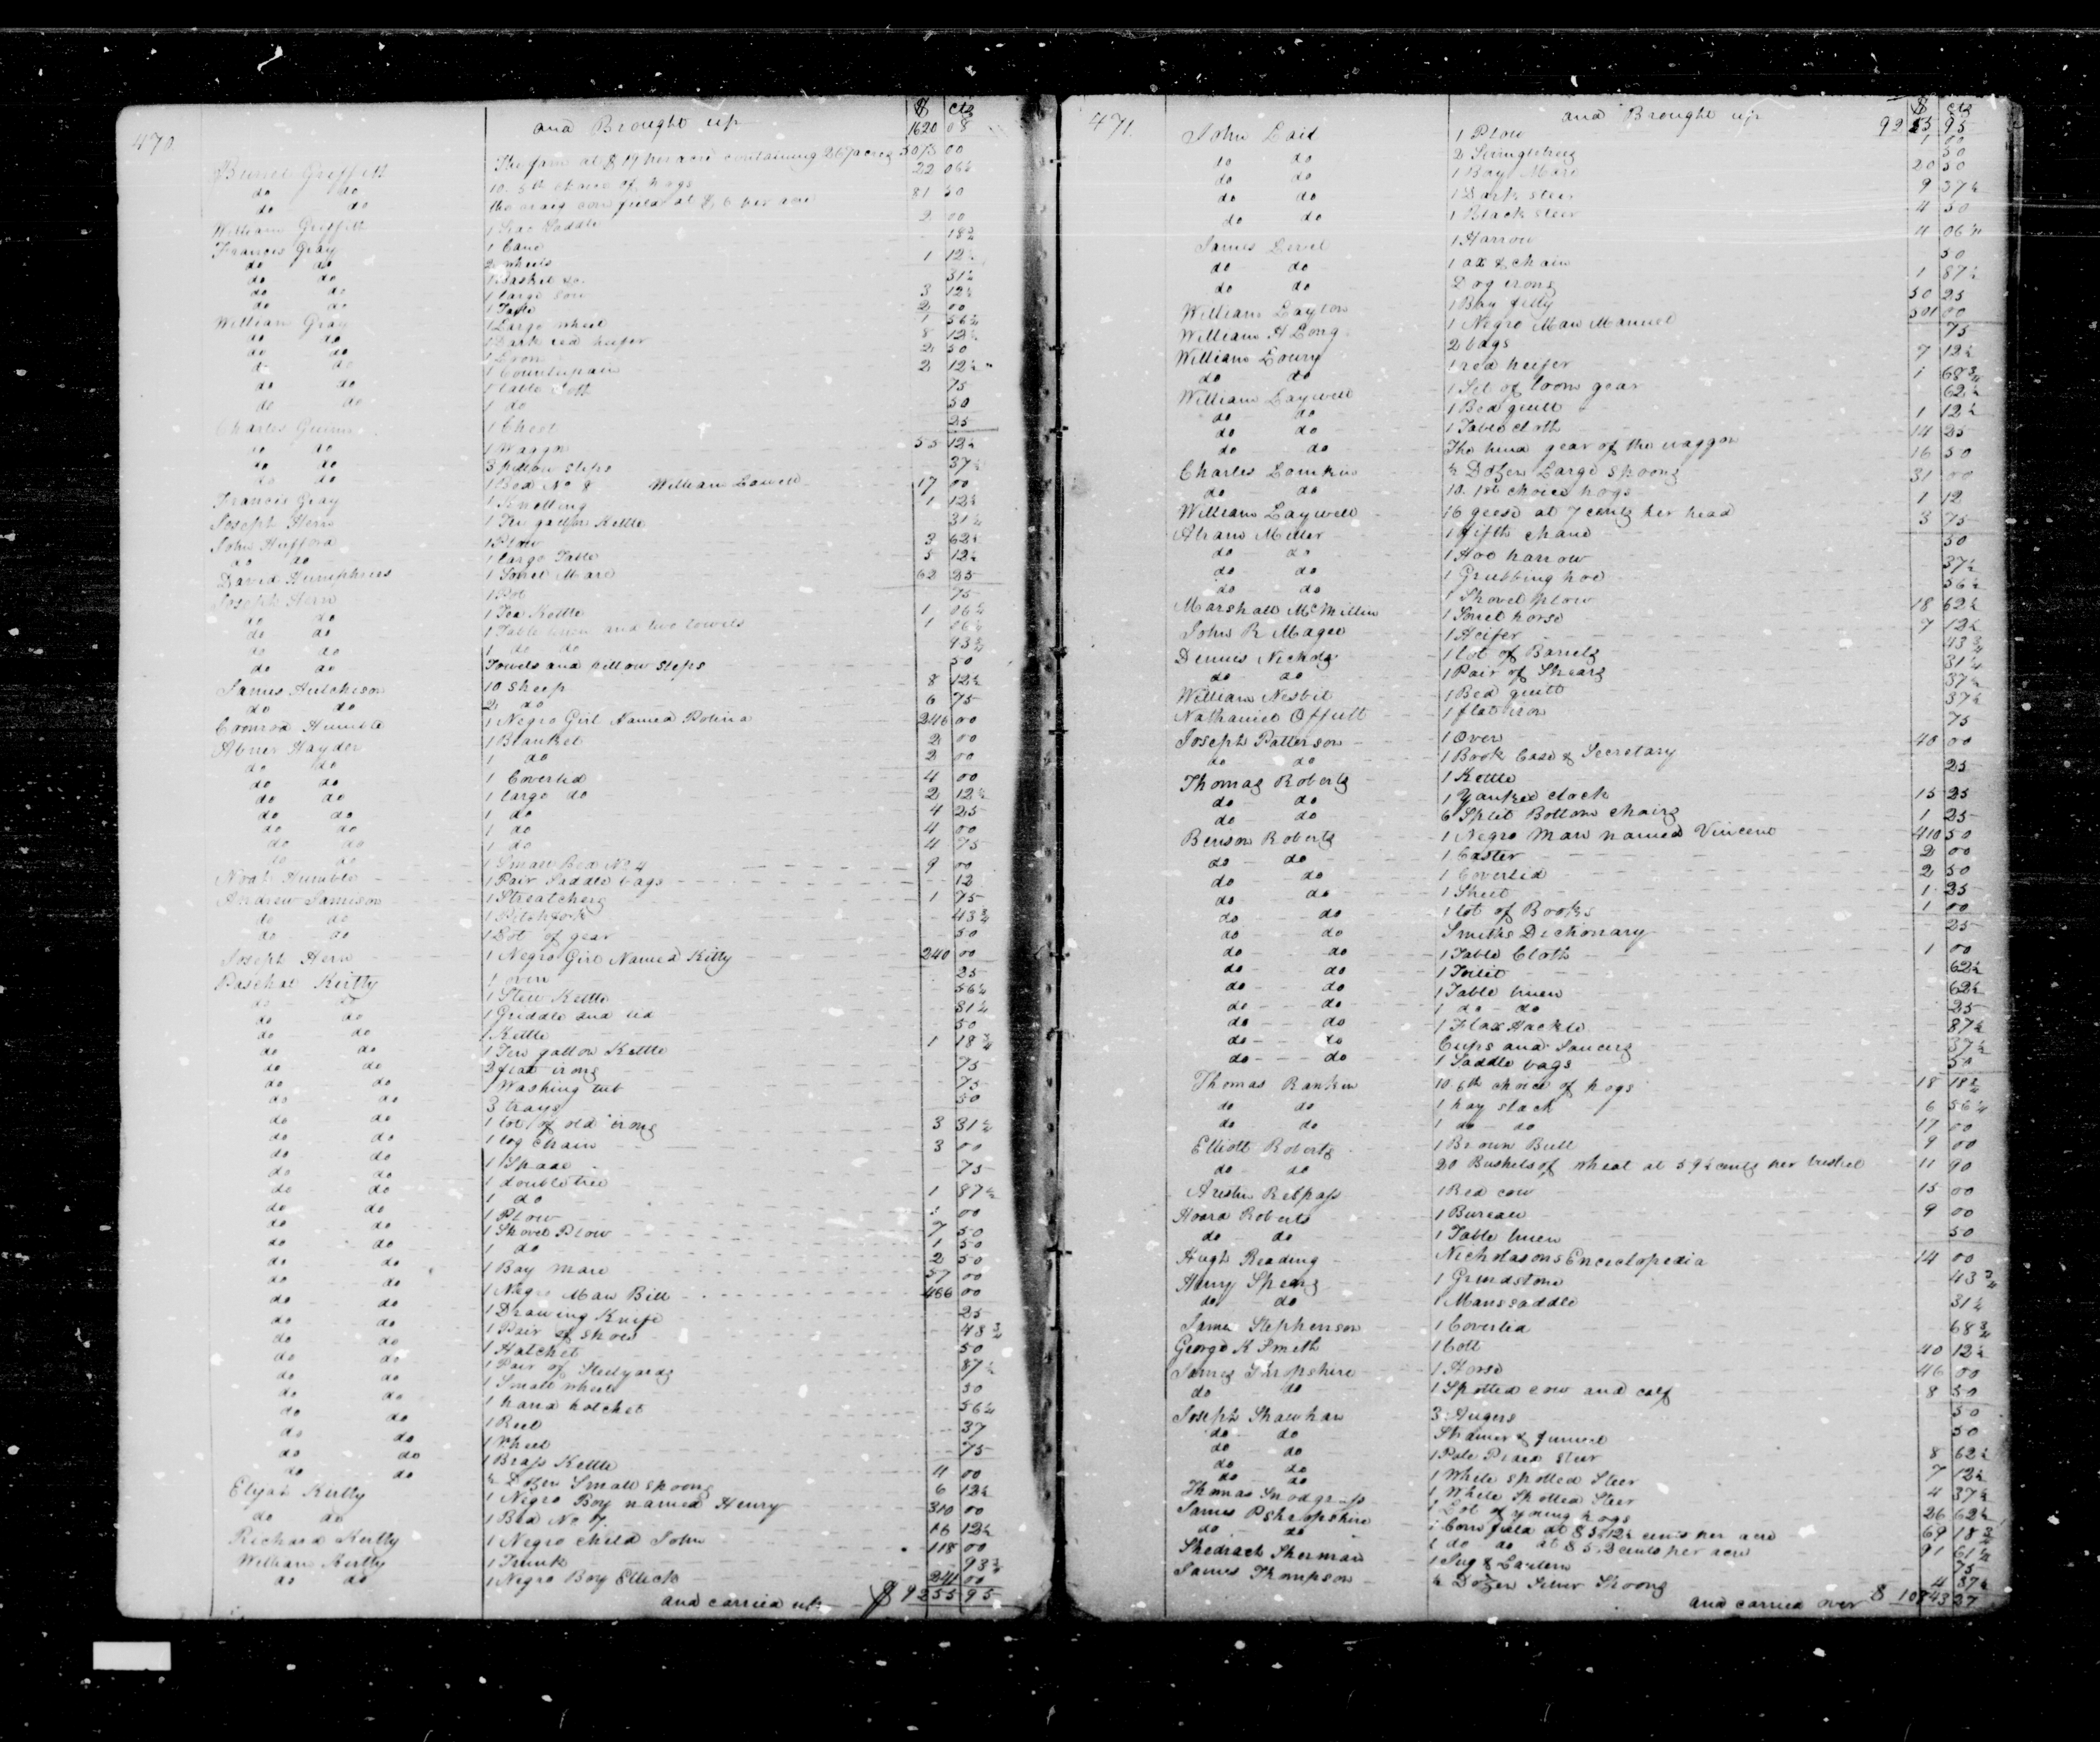 470
$ cts
and Brought up 1620 08
Burrel Griffith The farm at $19 per acre containing 267 acres 5073 00
do do 10. 5th choice of hogs 22 06¼
do do the corn field at $6 per acre 81 50
William Griffith 1 Saddle 2 00
Francis Gray 1 Cane 18¾
do do 2 wheels 1 12½
do do 1 Basket &c. 31¼
do do 1 large 3 12½
do do 1 Table 2 00
William Gray 1 Large wheel 1 56¼
do do 1 Dark red heifer 8 12½
do do 1 2 50
do do 1 Counterpain 2 12½
do do 1 table Cloth 75
do do 1 do 50
Charles Guinn 1 Chest 25
do do 1 Waggon 55 12½
do do 3 pillow slips 37½
do do 1 Bed No 8 William Lowell 17 00
Francis Gray 1 12½
Joseph Hern 1 Ten gallon Kettle 31¼
John Hufford 1 Plow 3 62½
do do 1 large Table 5 12½
David Humphries 1 Sorrel Mare 62 25
Joseph Hern 1 Pot 75
do do 1 Tea Kettle 1 06¼
do do 1 Table linen and two towels 1 06¼
do do 1 do do 93¾
do do Towels and pillow slips 50
James Hutcheson 10 sheep 8 12½
do do 2 do 6 75
Conrod Humble 1 Negro Girl Named Polina 246 00
Abner Hayden 1 Blanket 2 00
do do 1 do 2 00
do do 1 Coverlid 4 00
do do 1 large do 2 12½
do do 1 do 4 25
do do 1 do 4 00
do do 1 do 4 75
do do 1 Small Bed No 4 9 00
Noah Humble 1 Pair Saddle bags 12
Andrew Jamison 1 Streatchers 1 75
do do 1 Pitchfork 43¾
do do 1 Lot of gear 50
Joseph Hern 1 Negro Girl Named Kitty 240 00
Paschal Kirtly 1 oven 25
do do 1 Stew Kettle 56¼
do do 1 Griddle and lid 81¼
do do 1 Kettle 50
do do 1 Ten gallon Kettle 1 18¾
do do 2 flat irons 75
do do 1 Washing tub 75
do do 3 trays 50
do do 1 lot of old irons 3 31¼
do do 1 log chain 3 00
do do 1 Spade 75
do do 1 doubletree 1 87½
do do 1 do 00
do do 1 Plow 7 50
do do 1 Shovel Plow 1 50
do do 1 do 2 50
do do 1 Bay mare 57 00
do do 1 Negro Man Bill 466 00
do do 1 Drawing Knife 25
do do 1 Pair of shoes 48¾
do do 1 Hatchet 50
do do 1 Pair of Steelyards 87½
do do 1 Small wheel 50
do do 1 hand hatchet 56¼
do do 1 Reel 37
do do 1 Wheel 75
do do 1 Brass Kettle 4 00
do do ½ Dozen Small spoons 6 12½
Elijah Kirtly 1 Negro Boy named Henry 310 00
do do 1 Bed No 7. 16 12½
Richard Kirtly 1 Negro child John 118 00
William Kirtly 1 Trunk 93¾
do do 1 Negro Boy Ellick 241 00
and carried up $ 9255 95
471.
$ cts
and Brought up 9255 95
John Lail 1 Plow 1 00
do do 2 Singletrees 50
do do 1 Bay Mare 20 50
do do 1 Dark steer 9 37½
do do 1 Black steer 4 50
James Level 1 Harrow 4 06¼
do do 1 ax & chain 50
do do Dog irons 1 87½
William Layton 1 Bay filly 50 25
William H Long 1 Negro Man Manuel 501 00
William Loury 2 bags 75
do do 1 red heifer 7 12½
William Laywell 1 Set of loom gear 1 68¾
do do 1 Bed quilt 62½
do do 1 Table cloth 1 12½
do do The hind gear of the waggon 14 25
Charles Lomkin ½ Dozen Large Spoons 16 50
do do 10. 1st choice hogs 31 00
William Laywell 16 geese at 7 cents per head 1 12
Abram Miller 1 fifth chane 3 75
do do 1 Hoe harrow 50
do do 1 Grubbing hoe 37½
do do 1 Shovel plow 56¼
Marshall McMillin 1 Sorrel horse 18 62½
John R Magee 1 Heifer 7 12½
Dennis Nichols 1 lot of Barrels 43¾
do do 1 Pair of Shears 31¼
William Nesbit 1 Bed quilt 37½
Nathaniel Offutt 1 flat iron 37½
Joseph Patterson 1 Oven 75
do do 1 Book Case & Secretary 40 00
Thomas Roberts 1 Kettle 25
do do 1 Yankee clock 15 25
do do 6 Split Bottom chairs 1 25
Benson Roberts 1 Negro Man named Vincent 410 50
do do 1 Caster 2 00
do do 1 Coverlid 2 50
do do 1 Sheet 1 25
do do 1 lot of Books 1 00
do do Smiths Dictionary 25
do do 1 Table Cloth 1 00
do do 1 Toilet 62½
do do 1 Table linen 62½
do do 1 do do 25
do do 1 Flax Hackle 87½
do do Cups and Saucers 37½
do do 1 Saddle bags 50
Thomas Rankin 10. 6th choice of hogs 18 18¾
do do 1 hay stack 6 56¼
do do 1 do do 17 00
Elliott Roberts 1 Brown Bull 9 00
do do 20 Bushels of wheat at 59½ cents per bushel 11 90
Austin Respass 1 Red cow 15 00
Hoard Roberts 1 Bureau 9 00
do do 1 Table linen 50
Hugh Reading Nicholasons Enceclopedia 14 00
Henry Spears 1 Grindstone 43¾
do do 1 Mans saddle 31¼
James Stephenson 1 Coverlid 68¾
George K Smith 1 Colt 40 12½
James Shropshire 1 Horse 46 00
do do 1 Spotted cow and calf 8 50
Joseph Shawhan 3 Augers 50
do do Strainer & funnel 50
do do 1 Pale Pided steer 8 62½
do do 1 White spotted Steer 7 12½
do do 1 White Spotted Steer 4 37½
Thomas Snodgrass 1 Lot of young hogs 26 62½
James P Shropshire 1 Corn field at $5.12½ cents per acre 69 18¾
do do 1 do do at $5. 2 cents per acre 91 61¼
Shedrach Sherman 1 Jug & Lantern 75
James Thompson ½ Dozen Silver Spoons 4 87½
and carried over $ 10843 27